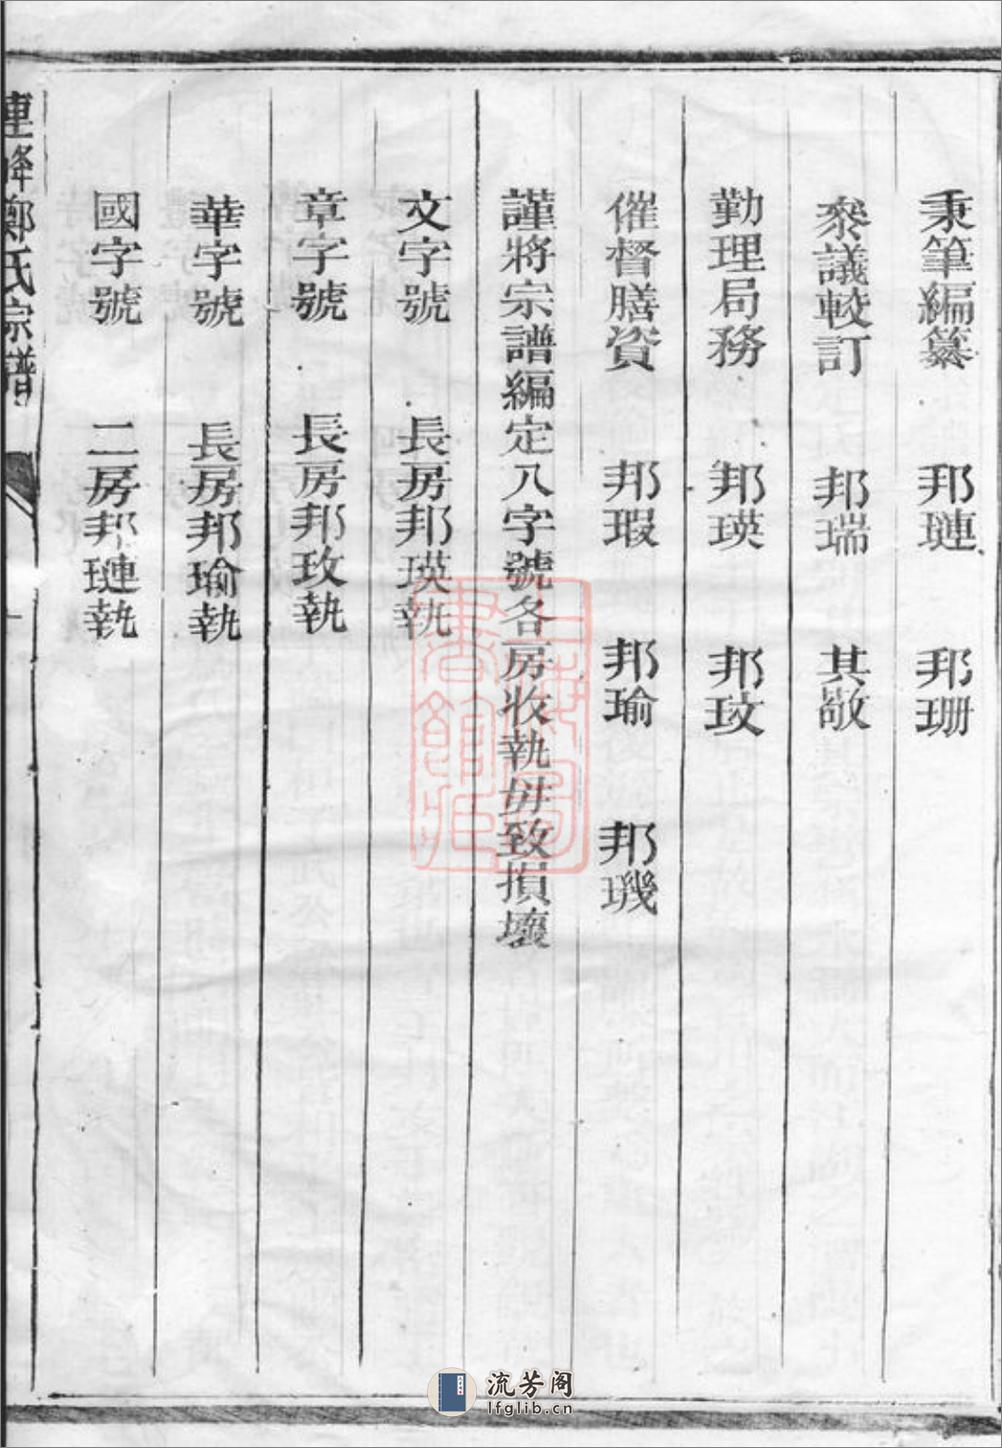 秉筆編纂 邦璉 邦珊
叅議較訂 邦瑞 其敬
勤理局務 邦瑛 邦玟
催督膳資 邦瑕 邦瑜 邦璣
謹將宗譜編定八字號各房收執毋致損壞
文字號 長房邦瑛執
章字號 長房邦玫執
華字號 長房邦瑜執
國字號 二房邦璉執
連峰鄭氏宗譜
上海圖書館藏
流芳阁
lfglib.cn